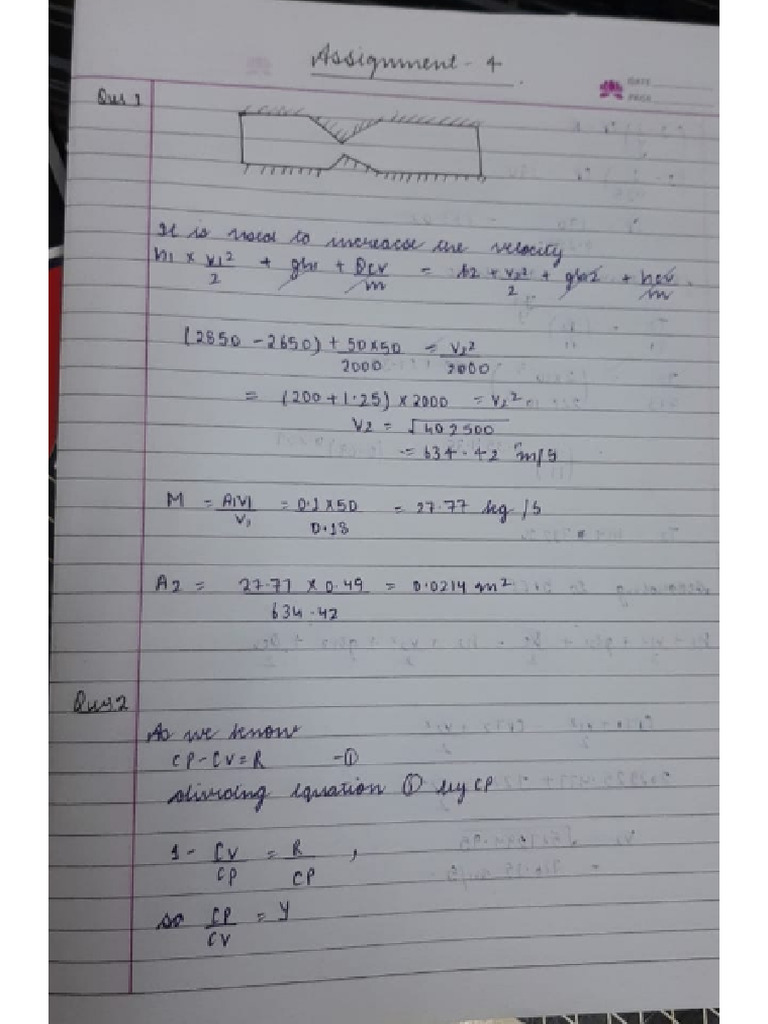 Assignment - 4
DATE
PAGE
Ques 1
It is used to increase the velocity
h1 × v1²/2 + gh1 + Qcv/m = h2 + v2²/2 + gh2 + wcv/m
(2850 - 2650) + 50×50/2000 = V2²/2000
= (200 + 1.25) × 2000 = V2²
V2 = √402500
= 634.42 m/s
M = A1V1/V1 = 0.1×50/0.18 = 27.77 kg/s
A2 = 27.77 × 0.49/634.42 = 0.0214 m²
Ques 2
As we know
CP - CV = R - ①
dividing equation ① by CP
1 - CV/CP = R/CP ,
so CP/CV = Y